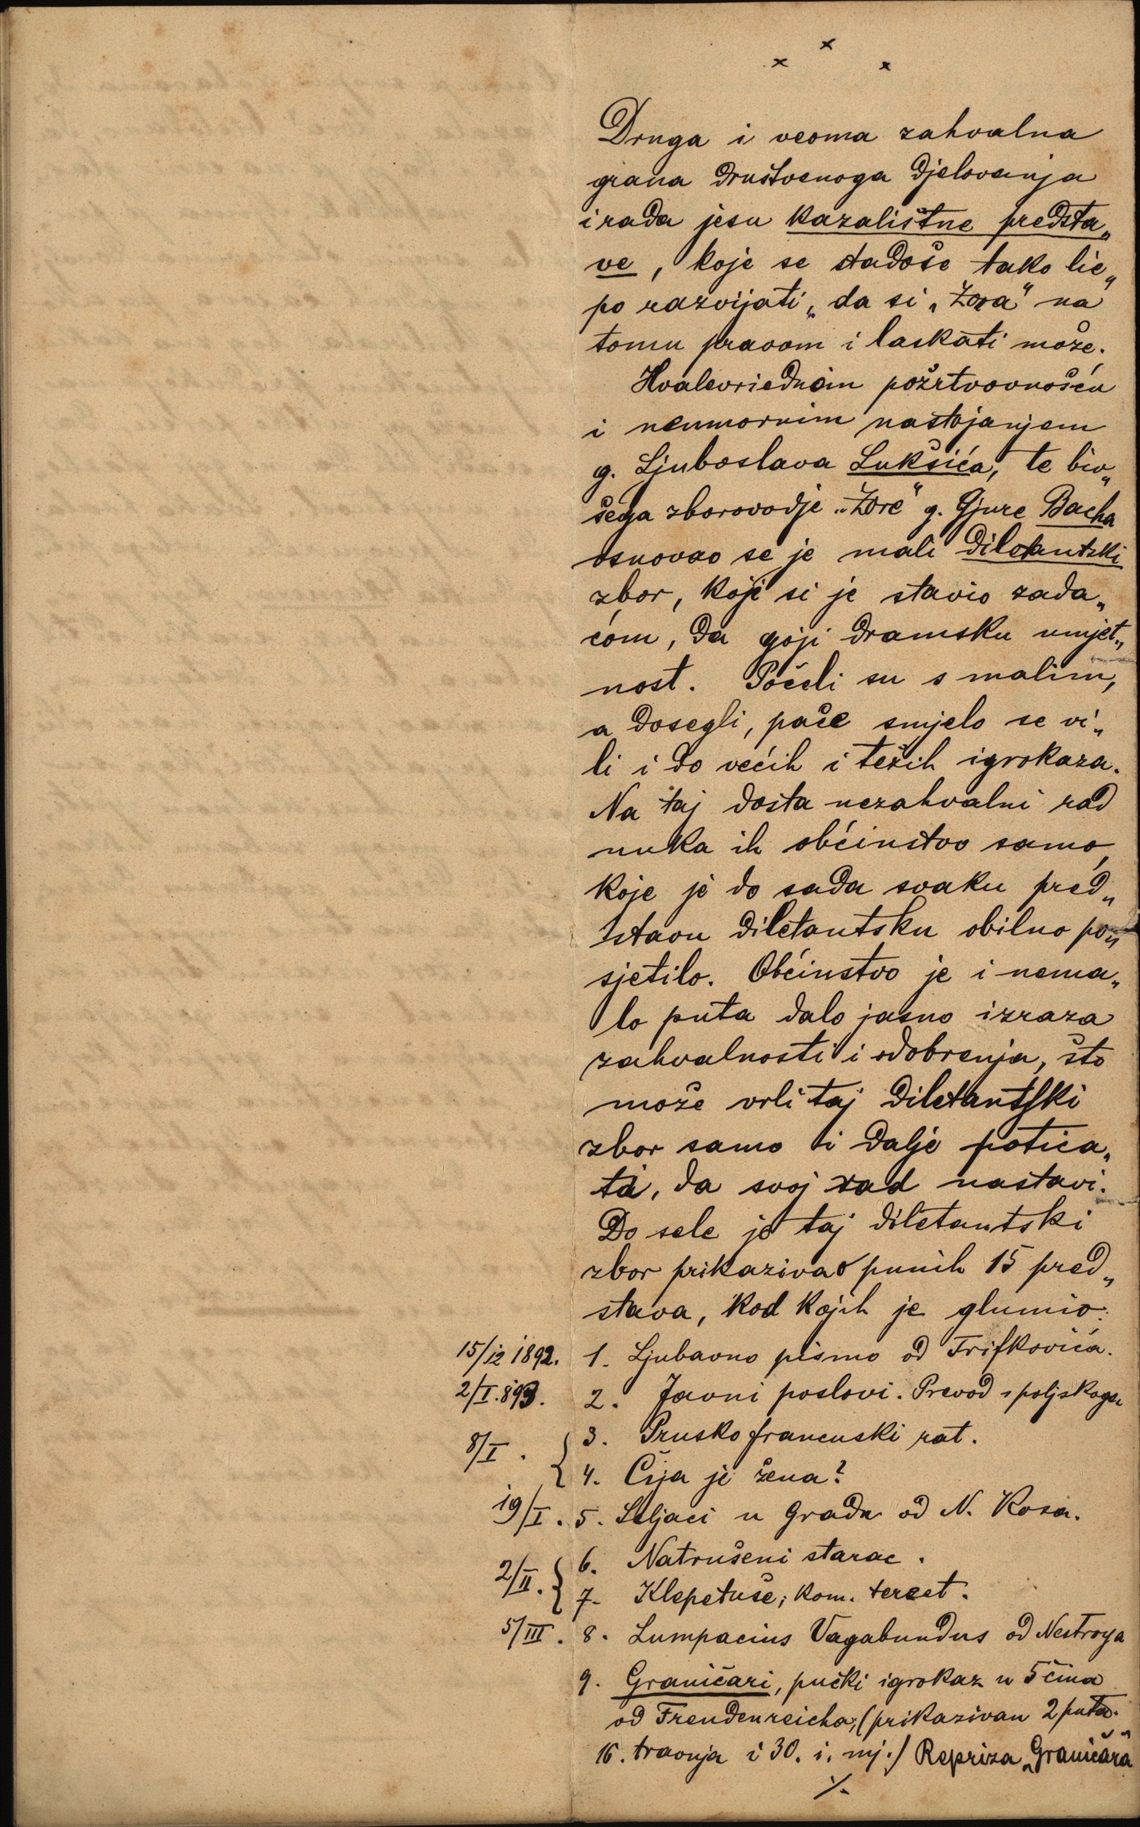 x x x
Druga i veoma zahvalna
grana društvenoga djelovanja
i rada jesu kazalištne predsta„
ve, koje se stadoše tako lie„
po razvijati, da si „Zora" na
tomu pravom i laskati može.
Hvalevriednom požrtvovnošću
i neumornim nastojanjem
g. Ljuboslava Lukšića, te biv„
šega zborovodje „Zore" g. Gjure Bacha
osnovao se je mali diletantski
zbor, koji si je stavio zada„
ćom, da goji dramsku umjet„
nost. Počeli su s malim,
a dosegli, pače smjelo se vi„
li i do većih i težih igrokaza.
Na taj dosta nezahvalni rad
nuka ih obćinstvo samo,
koje je do sada svaku pred„
stavu diletantsku obilno po„
sjetilo. Obćinstvo je i nema„
lo puta dalo jasno izraza
zahvalnosti i odobrenja, što
može vrli taj diletantski
zbor samo i dalje potica„
ti, da svoj rad nastavi.
Do sele je taj diletantski
zbor prikazivao punih 15 pred„
stava, kod kojih je glumio:
15/12 1892. 1. Ljubavno pismo od Trifkovića.
2/I. 893. 2. Javni poslovi. Prevod s poljskoga
8/I. { 3. Prusko francuski rat.
4. Čija je žena?
19/I. 5. Seljaci u gradu od N. Kosa.
2/II. { 6. Natrušeni starac.
7. Klepetuše, kom. tercet.
5/III. 8. Lumpacius Vagabundus od Nestroya
9. Graničari, pučki igrokaz u 5 čina
od Freudenreicha, (prikazivan 2 puta.
16. travnja i 30. i. mj.) Repriza „Graničara"
./.